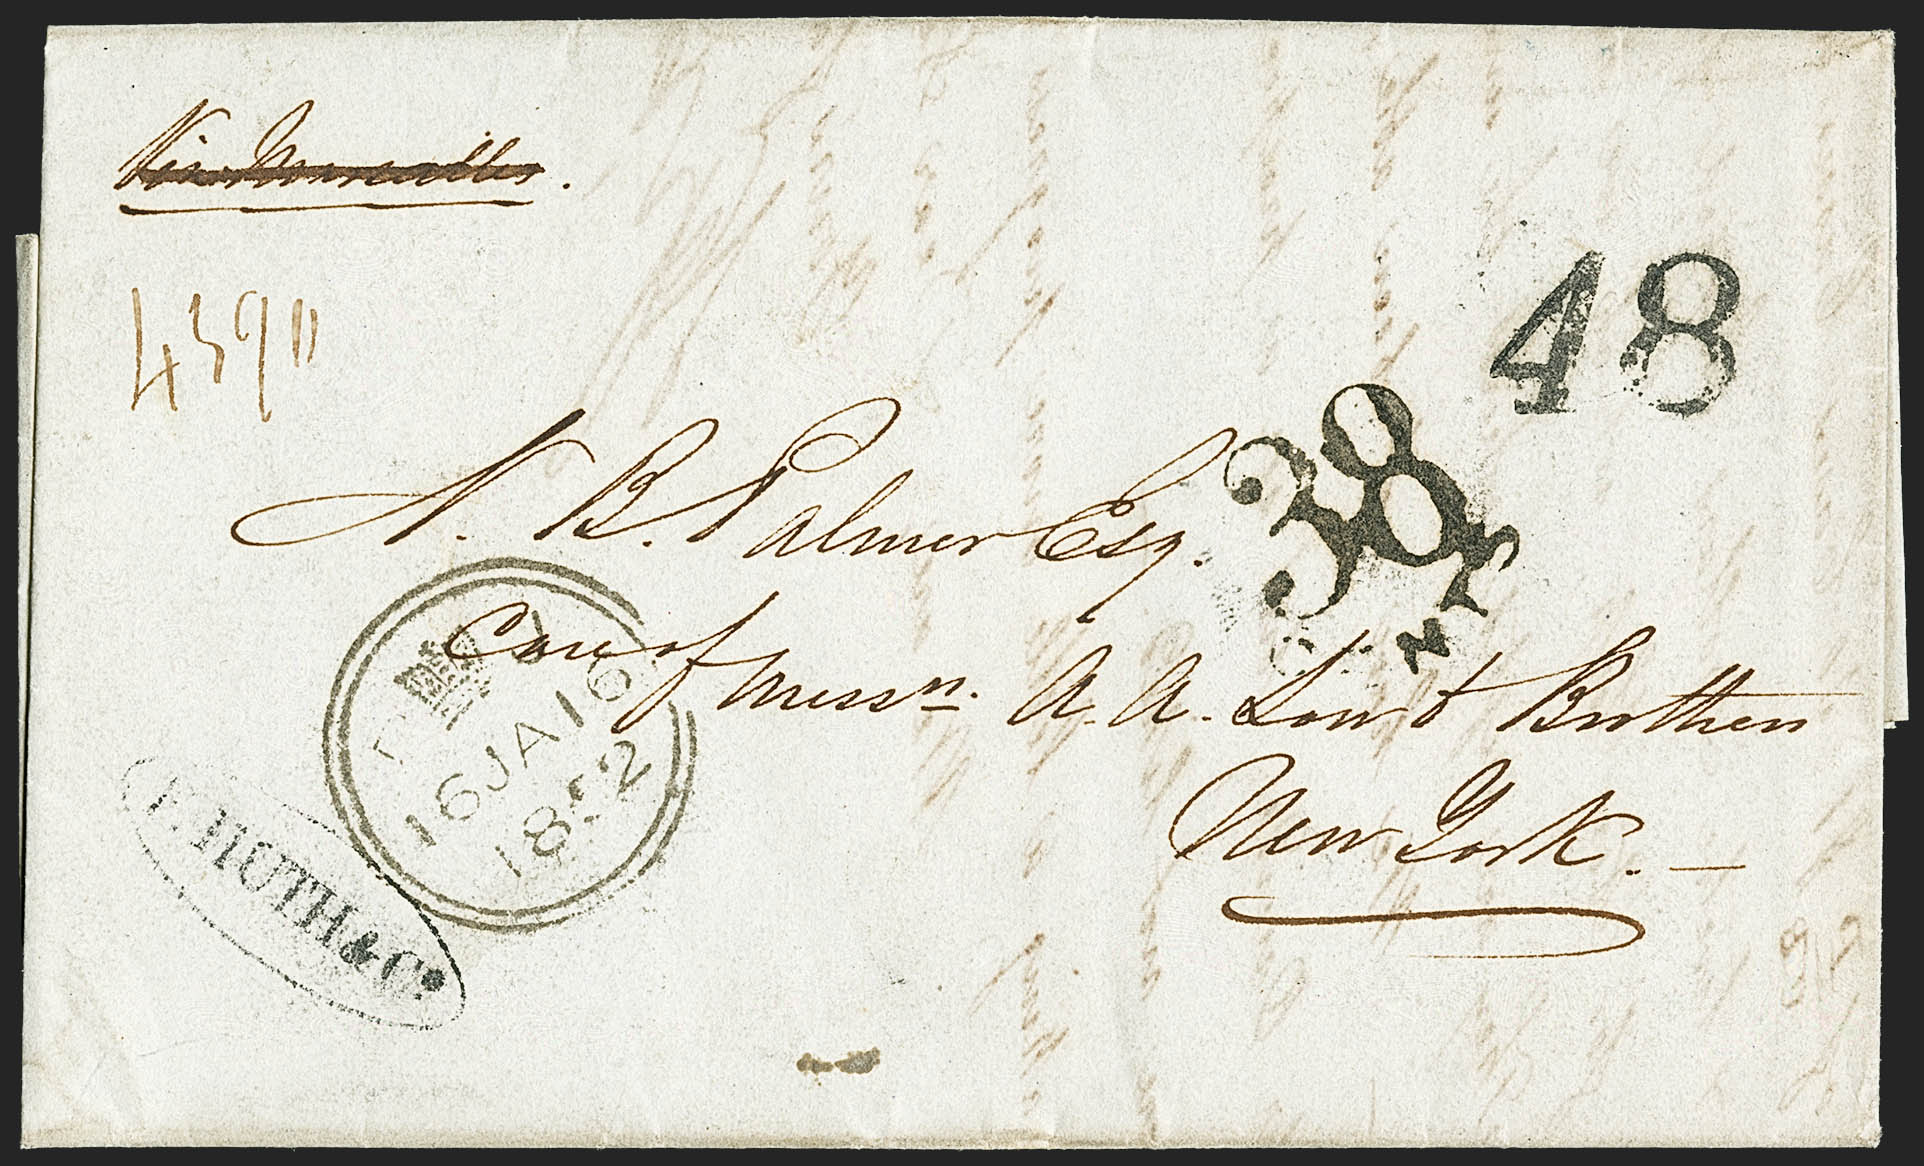 Via Marseilles.
4 39 11
48
38
N. B. Palmer Esq.
Care of Messrs. A. A. Low & Brothers
New York. —
16 JA 16
1852
F. HUTH & Co